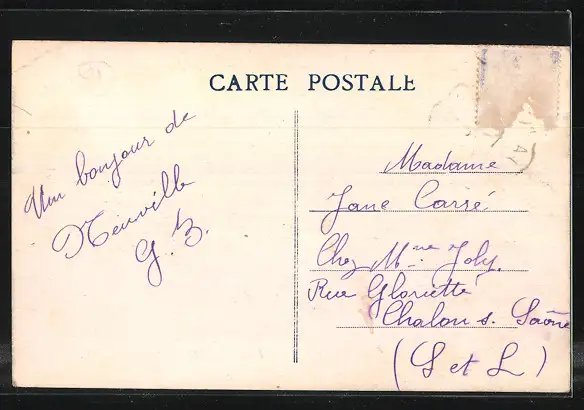 CARTE POSTALE
Un bonjour de
Neuville
G. B.
Madame
Jane Carré
Chez Mme Joly.
Rue Gloriette
Chalon s. Saône
(S et L)